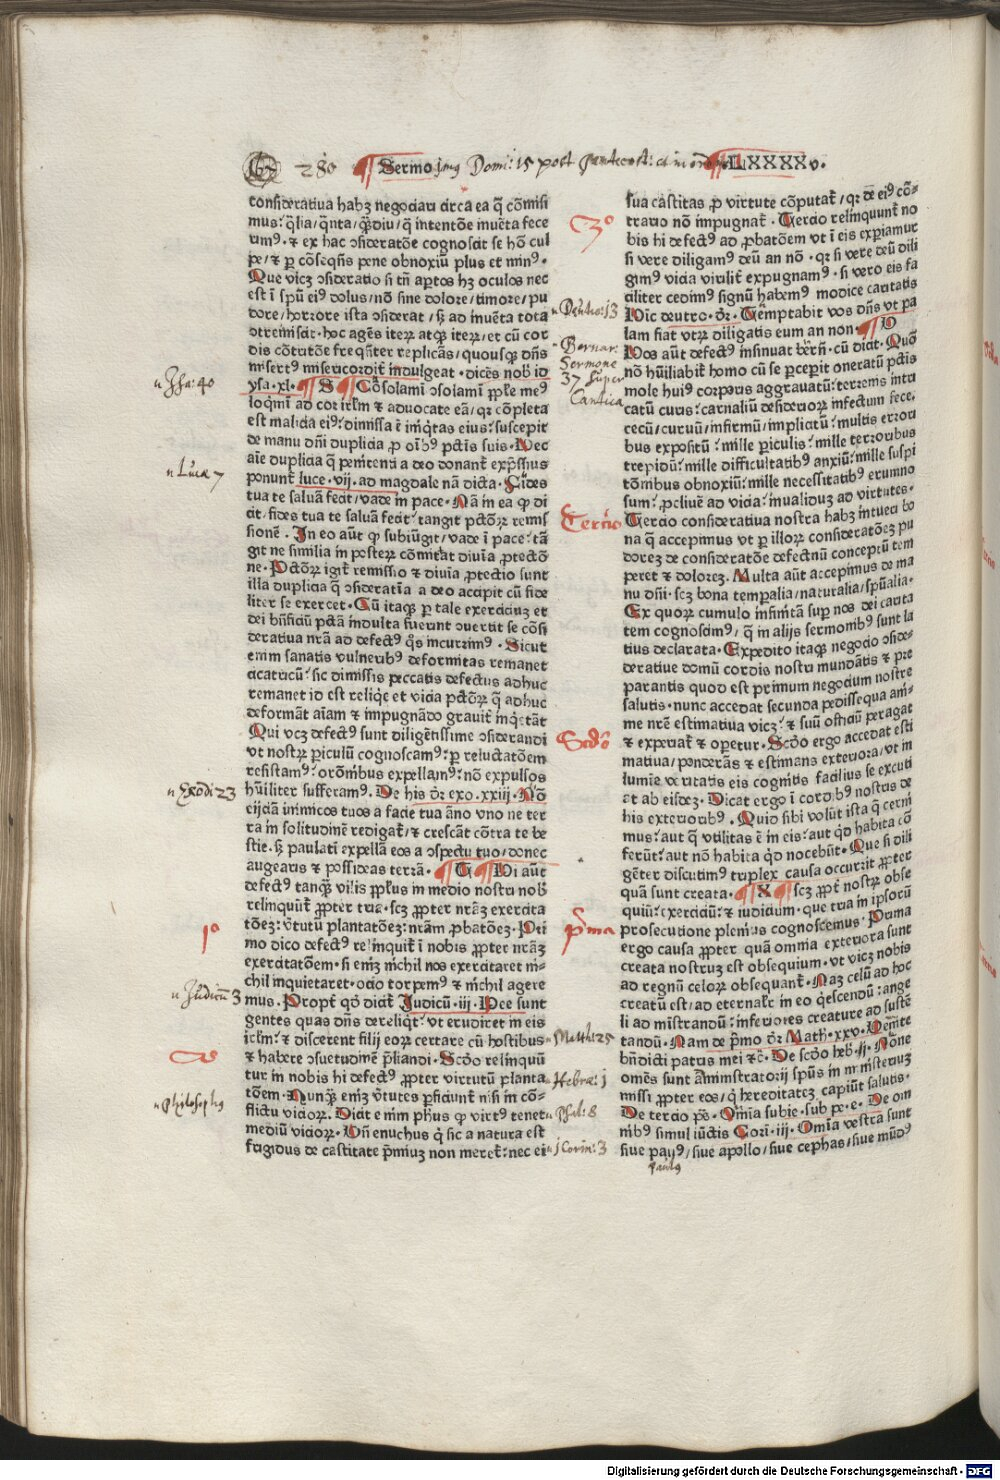 167 280 ¶ Sermo LXXXXv.
consideratiua habꝫ negociari circa ea q̄ cōmisi
mus: q̄lia/ q̄nta/ q̄ꝫdiu/ q̄ intentōe inuēta fece
rimꝰ. ⁊ ex hac ɔsideratōe cognoscit se hō cul
pe/ ⁊ ꝑ cōseq̄ns pene obnoxiū plus et minꝰ.
Que vicꝫ ɔsideratio si tn̄ aꝑtos hꝫ oculos nec
est ī spū eiꝰ dolus/ nō sine dolore/ timore/ pu
dore/ horrore ista ɔsiderat/ sꝫ ad inuēta tota
ɔtremiscit. hoc agēs iteꝝ atqꝫ iteꝝ/ et cū cor
dis cōtritōe freq̄nter replicās/ quousqꝫ dn̄s
misert̉ misericordit̉ indulgeat. dicēs nob̄ id
ysa. xl. ¶ S ¶ Cōsolami ɔsolami pp̄le meꝰ
loq̄mī ad cor irl̄m ⁊ aduocate eā/ qꝛ cōpleta
est malicia eiꝰ: dimissa ē iniq̄tas eius: suscepit
de manu dn̄i duplicia ꝓ oībꝰ pctīs suis. Nec
aūt duplicia q̄ penitenti a deo donant̉ exp̄ssius
ponunt̉ luce. vij. ad magdalenā dicta. Fides
tua te saluā fecit/ vade in pace. Nā in ea ꝙ di
cit/ fides tua te saluā fecit: tangit pctōꝝ remis
sionē. In eo aūt ꝙ subiūgit/ vade ī pace: tā
git ne similia in posteꝝ cōmittat diuīa ꝓtectō
ne. Pctōꝝ igit̉ remissio ⁊ diuīa ꝓtectio sunt
illa duplicia q̄ ɔsideratīa a deo accipit cū fide
liter se exercet. Cū itaqꝫ ꝑ tale exerciciuꝫ et
dei bn̄ficiū pctā indulta fuerint ɔuertit se cōsi
deratiua nr̄a ad defectꝰ q̄s incurrimꝰ. Sicut
enim sanatis vulneribꝰ deformitas remanet
cicatricū: sic dimissis peccatis defectus adhuc
remanet id est reliq̄e et vicia pctōꝝ q̄ adhuc
deformāt aīam ⁊ impugnādo grauit̉ inq̄etāt
Qui vcꝫ defectꝰ sunt diligētissime ɔsiderandi
vt nostꝝ periculū cognoscamꝰ: ꝑ reluctatōem
resistamꝰ: orōnibus expellamꝰ: nō expulsos
hūiliter sufferamꝰ. De his dr̄ exo. xxiij. Nō
eijciā inimicos tuos a facie tua āno vno ne ter
ra in solitudinē redigat̉/ ⁊ crescāt cōtra te be
stie. sꝫ paulati expellā eos a ɔspectu tuo/ donec
augearis ⁊ possideas terrā. ¶ T ¶ Di aūt
defectꝰ tanqꝫ vilis pp̄lus in medio nostri nob̄
relinquūt̉ ꝓpter tria. scꝫ ꝓpter nr̄aꝫ exercita
tōeꝫ: v̓tutū plantatōeꝫ: nr̄am ꝓbatōeꝫ. Pri
mo dico defectꝰ relinquit̉ ī nobis ꝓpter nr̄aꝫ
exercitatōem. si enīꝫ nichil nos exercitaret ni
chil inquietaret. ocio torpemꝰ ⁊ nichil agere
mus. Propt̉ qd̄ dicit̉ Judicū. iij. Hee sunt
gentes quas dn̄s dereliq̄t: vt erudiret in eis
irl̄m: ⁊ discerent filij eoꝝ certare cū hostibus
⁊ habere ɔsuetudinē p̄liandi. Scd̄o relinquū
tur in nobis hi defectꝰ ꝓpter virtutū planta
tōem. Nunqꝫ enīꝫ v̓tutes ꝑficiunt̉ nisi in cō
flictu vicioꝝ. Dicit enim ph̄us ꝙ virtꝰ tenet
mediū vicioꝝ. Vn̄ enuchus q̄ sic a natura est
frigidus de castitate p̄miuꝫ non meret̉: nec ei
sua castitas ꝓ virtute cōputat̉/ qꝛ de eiꝰ cō
trario nō impugnat̉. Tercio relinquunt̉ no
bis hi defectꝰ ad ꝓbatōem vt ī eis experiamur
si vere diligamꝰ deū an nō. qꝛ si vere deū dili
gimꝰ vicia virilit̉ expugnamꝰ. si vero eis fa
ciliter cedimꝰ signū habemꝰ modice caritatis
Dic deutro. dr̄. Tēmptabit vos dn̄s vt pa
lam fiat vtꝝ diligatis eum an non. ¶ V
Hos aūt defectꝰ insinuat ber̄n. cū dicit. Quō
nō hūiliabit̉ homo cū se ꝑceperit oneratū pctīs
mole huiꝰ corporis aggrauatū: terrenis intri
catū curis: carnaliū desideꝝ infectum fece.
cecū/ curuū/ infirmū/ implicitū: multis errori
bus expositū: mille periculis: mille terroribus
trepidū: mille difficultatibꝰ anxiū: mille suspi
tōnibus obnoxiū: mille necessitatibꝰ erumno
sum: ꝓcliuē ad vicia: inualiduꝫ ad virtutes.
Tercio consideratiua nostra habꝫ intueri bo
na q̄ accepimus vt ꝑ illoꝝ consideratōeꝫ pu
doreꝫ de consideratōe defectuū conceptū tem
peret ⁊ doloreꝫ. Multa aūt accepimus de ma
nu dn̄i. scꝫ bona temꝑalia/ naturalia/ spūalia.
Ex quoꝝ cumulo infinitā suꝑ nos dei carita
tem cognoscimꝰ/ q̄ in alijs sermonibꝰ sunt la
tius declarata. Expedito itaqꝫ negocio ɔside
ratiue domū cordis nostri mundātis ⁊ pre
parantis quod est primum negocium nostre
salutis. nunc accedat secunda pedissequa ani
me nr̄e estimatiua vicꝫ: ⁊ suū officiū peragat
⁊ experiat̉ ⁊ operetur. Scd̄o ergo accedat esti
matiua/ ponderās ⁊ estimans exteriora/ vt in
lumīe veritatis eis cognitis facilius se excuti
at ab eisdeꝫ. Dicat ergo ī cordibꝰ nostris de
his exterioribꝰ. Quid sibi volūt ista q̄ cerni
mus: aut q̄ vtilitas ē in eis: aut qd̄ habita cō
ferūt: aut nō habita qd̄ nocebūt. Que si dili
gēter discutimꝰ triplex causa occurrit ꝓpter
quā sunt creata. ¶ X ¶ scꝫ ꝓpt̉ nostꝝ obse
quiū: exerciciū: ⁊ iudiciū. que tria in ipsorū
prosecutione plenius cognoscemus. Prima
ergo causa ꝓpter quā omnia exteriora sunt
creata nostruꝫ est obsequium. vt vicꝫ nobis
ad regnū celoꝝ obsequant̉. Naꝫ celū ad hoc
creatū est/ ad eternalr̄ in eo q̄escendū: ange
li ad ministrandū: inferiores creature ad sustē
tandū. Nam de p̄mo dr̄ Math. xxv. Venite
bn̄dicti patris mei ⁊c̄. De scd̄o heb. ij. Nōne
omēs sunt am̄inistratorij spūs in ministeriuꝫ
missi ꝓpter eos/ q̄ hereditateꝫ capiūt salutis.
De tercio ps̄. Om̄ia subie. sub pe. e. De om
nibꝰ simul iūctis Cori. iij. Om̄ia vestra sunt
siue payꝰ/ siue apollo/ siue cephas/ siue mūdꝰ
paulꝰ
Deutro: 13
Bernar:
Sermone
37 super
Cantica
Luce 7
Exodi 23
Judicū 3
philosophꝰ
3º
Tercio
Scd̄o
1º
p̄ma
Matth: 25
Hebre: 1
Psal: 8
1 Corin: 3
Digitalisierung gefördert durch die Deutsche Forschungsgemeinschaft - DFG